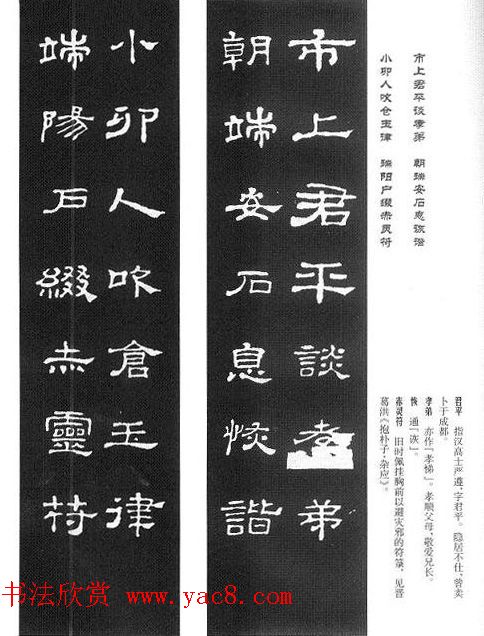 市上君平谈孝弟　朝端安石息恢谐
小卯人吹仓玉律　端阳户缀赤灵符
君平　指汉高士严遵，字君平。隐居不仕，尝卖
卜于成都。
孝弟　亦作『孝悌』。孝顺父母，敬爱兄长。
恢　通『诙』。
赤灵符　旧时佩挂胸前以避灾邪的符箓，见晋
葛洪《抱朴子·杂应》。
市上君平談孝弟
朝端安石息恢諧
小卯人吹倉玉律
端陽戶綴赤靈符
书法欣赏 www.yac8.com